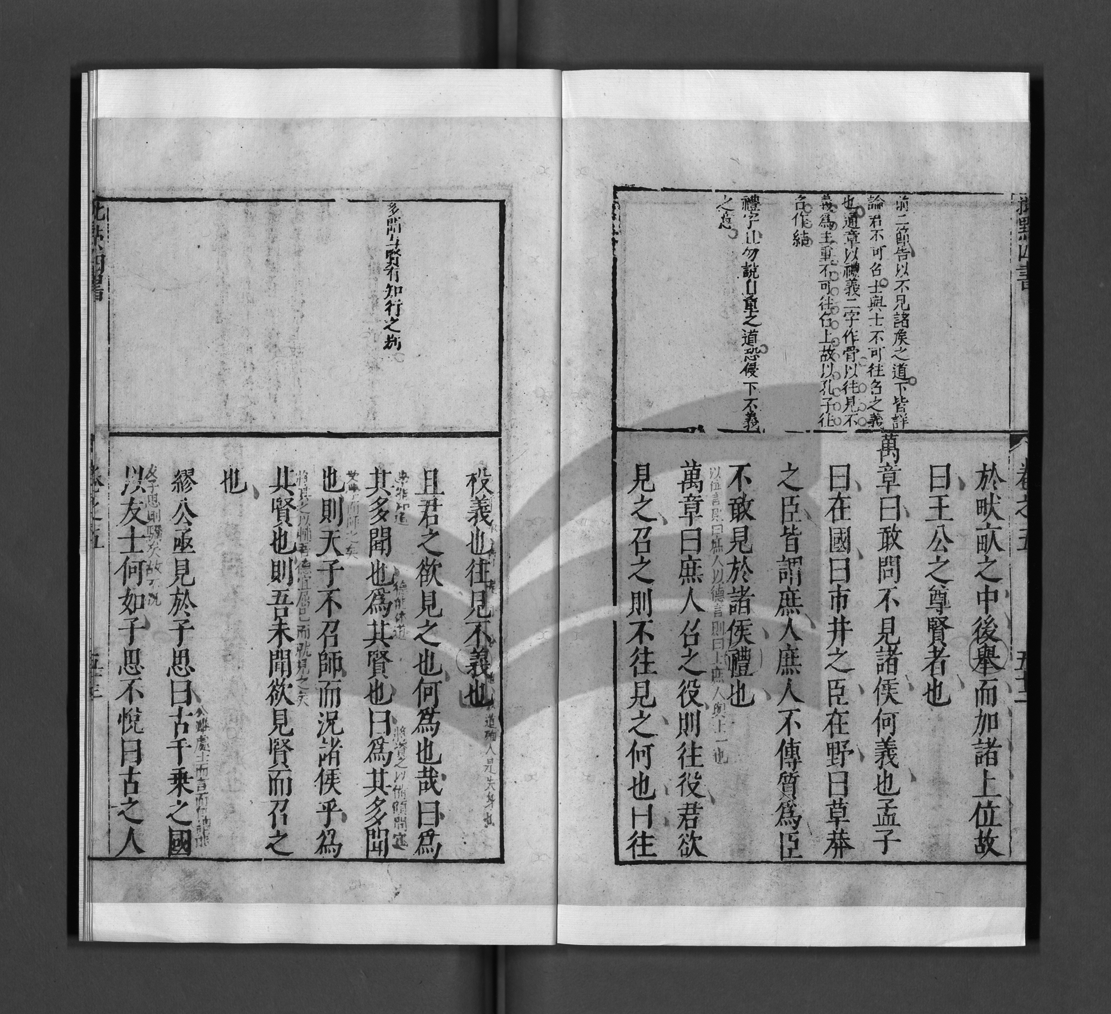 前二節告以不見諸侯之道下皆詳
論君不可召士與士不可往召之義
也通章以禮義二字作骨以往見不
義為主重不可往召上故以孔子往
召作結
禮字且勿說自重之道恐侵下不義
之意
於畎畝之中後舉而加諸上位故
曰王公之尊賢者也
萬章曰敢問不見諸侯何義也孟子
曰在國曰市井之臣在野曰草莽
之臣皆謂庶人庶人不傳質為臣
不敢見於諸侯禮也
以位言則曰庶人以德言則曰士庶人與士一也
萬章曰庶人召之役則往役君欲
見之召之則不往見之何也曰往
卷之五
五十二
多聞與賢有知行之別
役義也往見不義也
且君之欲見之也何為也哉曰為
其多聞也為其賢也曰為其多聞
也則天子不召師而況諸侯乎為
其賢也則吾未聞欲見賢而召之
也
繆公亟見於子思曰古千乘之國
以友士何如子思不悅曰古之人